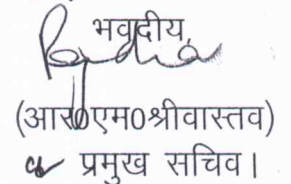 भवदीय,
(आर0एम0श्रीवास्तव)
प्रमुख सचिव।